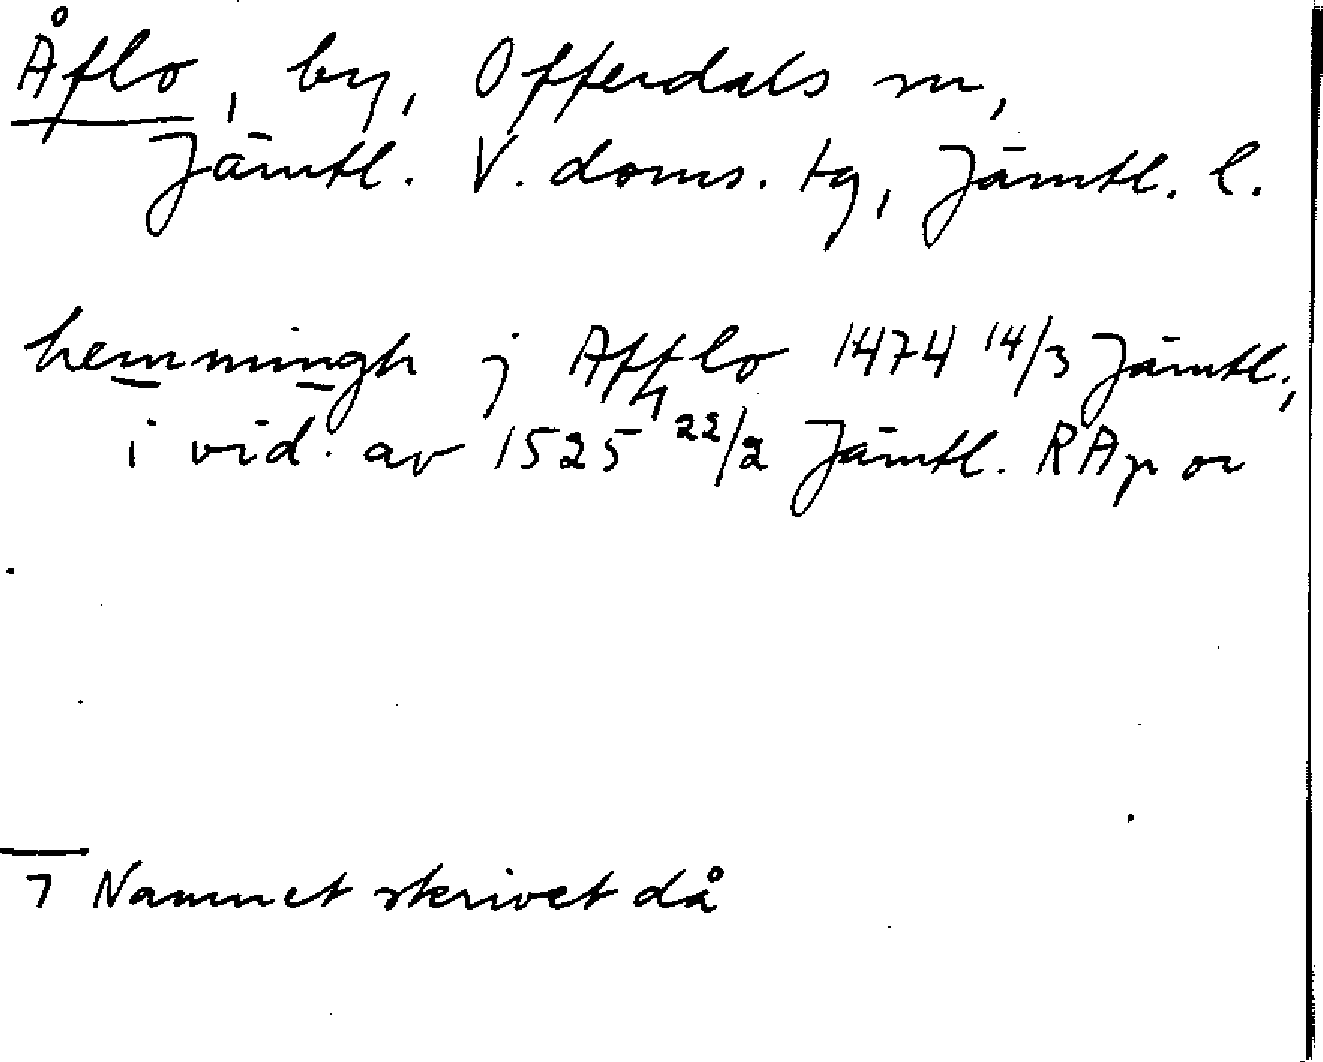 Åflo, by, Offerdals sn,
Jämtl. V. doms. tg, Jämtl. l.
hemmingh j Afflo 1474 14/3 Jämtl.,
i vid. av 1525 22/2 Jämtl. RAp or
7 Namnet skrivet då